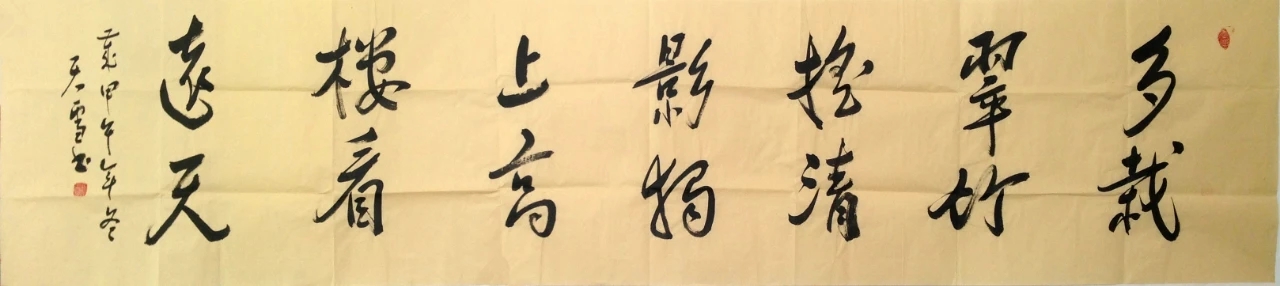 多栽
翠竹
摇清
影独
上高
楼看
远天
岁甲午年冬
石雪书